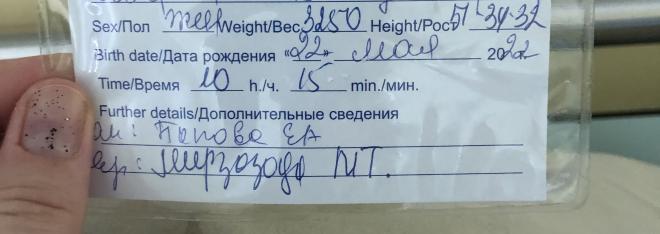 Sex/Пол жен Weight/Вес 3250 Height/Рост 51 34-32
Birth date/Дата рождения «22» мая 2022
Time/Время 10 h./ч. 15 min./мин.
Further details/Дополнительные сведения
ам: Попова ЕА
ер: Мирзозода МТ.